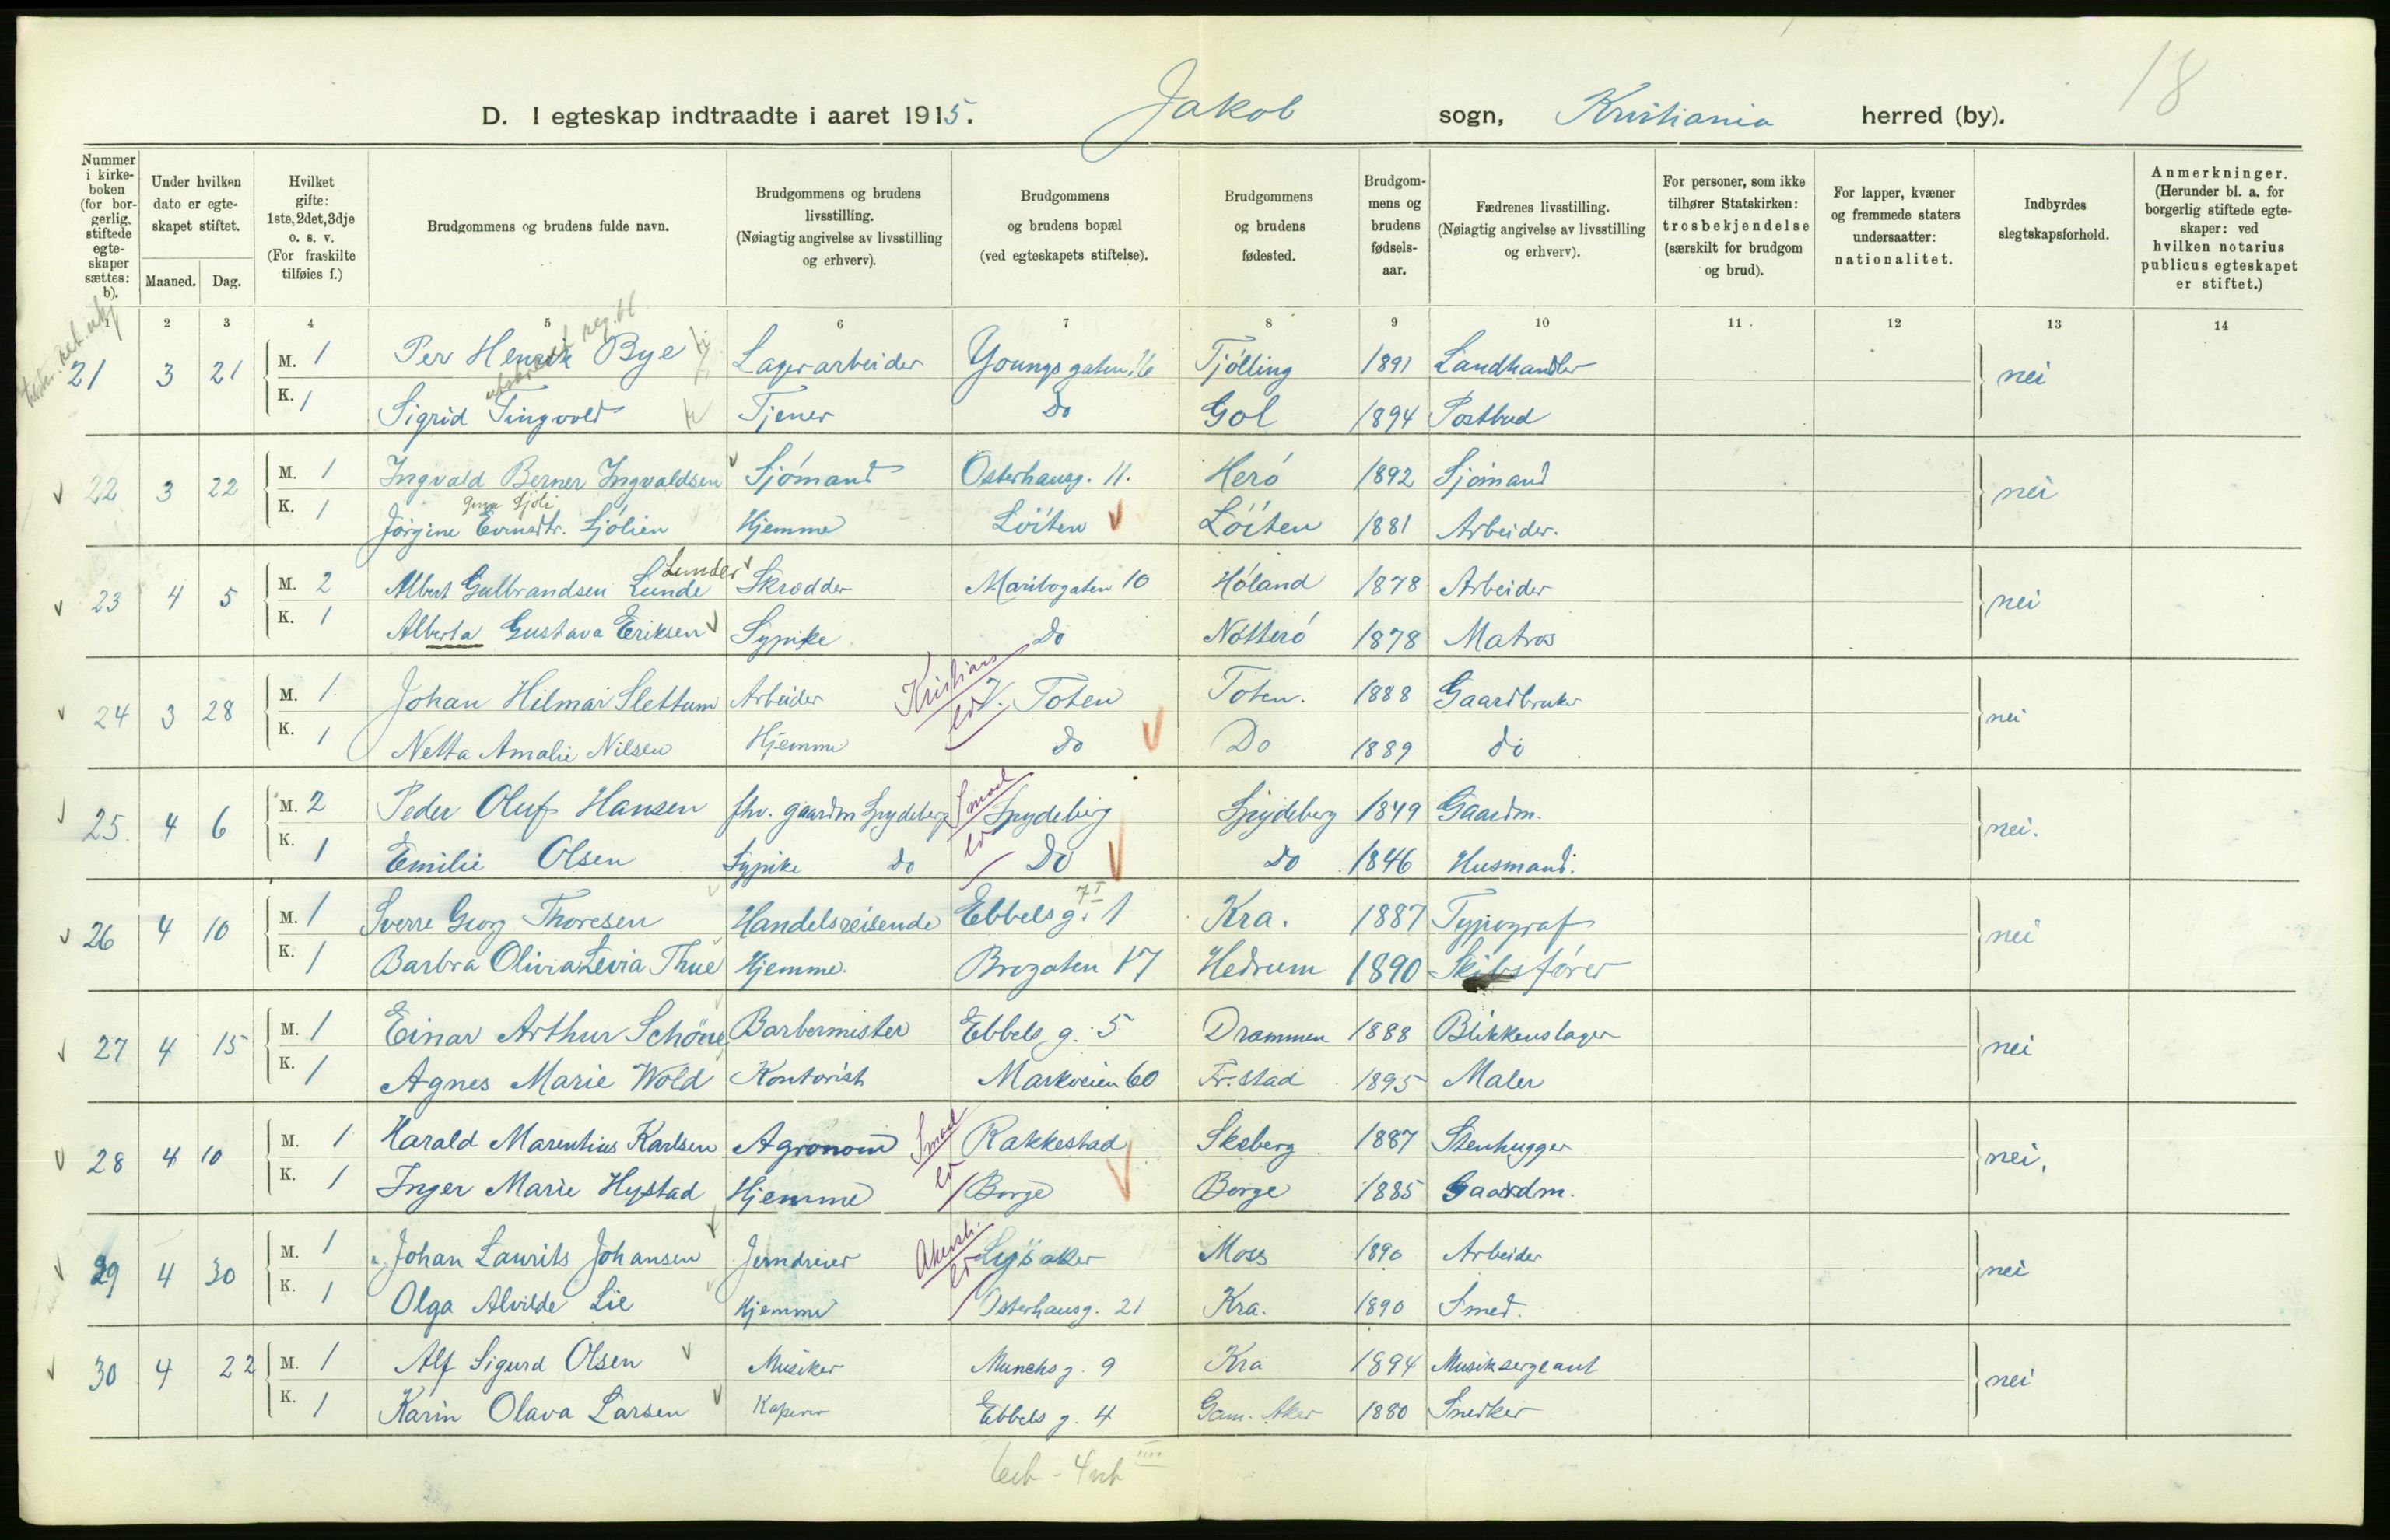 18
D. I egteskap indtraadte i aaret 1915. Jakob sogn, Kristiania herred (by).
Nummer i kirkeboken (for borgerlig stiftede egteskaper sættes: b).
Under hvilken dato er egteskapet stiftet.
Maaned. Dag.
Hvilket gifte: 1ste, 2det, 3dje o. s. v. (For fraskilte tilføies f.)
Brudgommens og brudens fulde navn.
Brudgommens og brudens livsstilling. (Nøiagtig angivelse av livsstilling og erhverv).
Brudgommens og brudens bopæl (ved egteskapets stiftelse).
Brudgommens og brudens fødested.
Brudgommens og brudens fødselsaar.
Fædrenes livsstilling. (Nøiagtig angivelse av livsstilling og erhverv).
For personer, som ikke tilhører Statskirken: trosbekjendelse (særskilt for brudgom og brud).
For lapper, kvæner og fremmede staters undersaatter: nationalitet.
Indbyrdes slegtskapsforhold.
Anmerkninger. (Herunder bl. a. for borgerlig stiftede egteskaper: ved hvilken notarius publicus egteskapet er stiftet.)
1 2 3 4 5 6 7 8 9 10 11 12 13 14
21 3 21 M. 1 Per Henrik Bye Lagerarbeider Youngsgaten 16 Tjölling 1891 Landhandler nei
K. 1 Sigrid Tingvold Tjener Do Gol 1894 Postbud
22 3 22 M. 1 Ingvald Berner Ingvaldsen Sjömand Osterhausg. 11. Herö 1892 Sjömand nei
K. 1 Jörgine Evensdtr. Sjölien Hjemme Löiten Löiten 1881 Arbeider.
Lunder
23 4 5 M. 2 Albert Gulbrandsen Lunde Skrædder Maribogaten 10 Höland 1878 Arbeider nei
K. 1 Alberta Gustava Eriksen Sypike Do Nötterö 1878 Matros
Kristians
24 3 28 M. 1 Johan Hilmar Slettum Arbeider V. Toten Toten. 1888 Gaardbruker nei
K. 1 Netta Amalie Nilsen Hjemme do Do 1889 do
Smaal
25. 4 6 M. 2 Peder Oluf Hansen fhv. gaardm Spydeberg Spydeberg Spydeberg 1849 Gaardm. nei.
K. 1 Emilie Olsen Sypike do Do Do 1846 Husmand.
26 4 10 M. 1 Sverre Georg Thoresen Handelsreisende Ebbelsg. 1 Kra. 1887 Typograf nei
K. 1 Barbra Olivia Levia Thue Hjemme. Brogaten 17 Hedrum 1890 Skibsförer
27 4 15 M. 1 Einar Arthur Schöne Barbermester Ebbels g. 5 Drammen 1888 Blikkenslager nei
K. 1 Agnes Marie Wold Kontorist Markveien 60 Fr.stad 1895 Maler
Smaal
28 4 10 M. 1 Harald Marentius Karlsen Agronom Rakkestad Skeberg 1887 Stenhugger nei.
K. 1 Inger Marie Hystad Hjemme Borge Borge 1885 Gaardm.
Akersh.
29 4 30 M. 1 Johan Laurits Johansen Jerndreier Lysaker Moss 1890 Arbeider nei
K. 1 Olga Alvilde Lie Hjemme Osterhausg. 21 Kra. 1890 Smed.
30 4 22 M. 1 Alf Sigurd Olsen Musiker Munchsg. 9 Kra 1894 Musiksergeant nei
K. 1 Karin Olava Larsen Ebbels g. 4 Gam. Aker 1880 Snedker